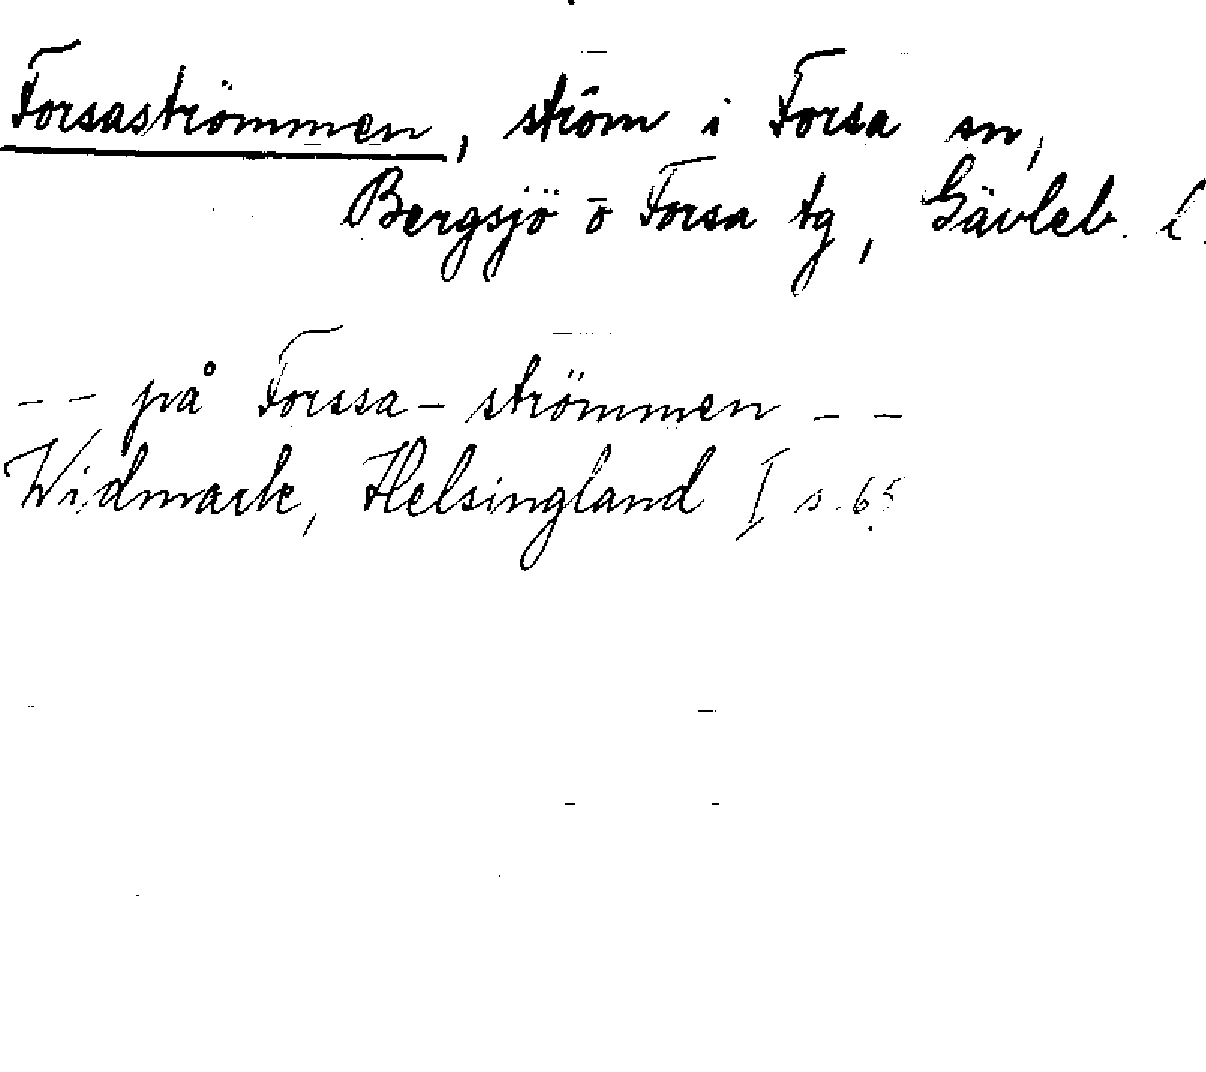 Forsaströmmen, ström i Forsa sn,
Bergsjö o Forsa tg, Gävleb. l.
-- på Forssa-strömmen --
Widmark, Helsingland I s. 65